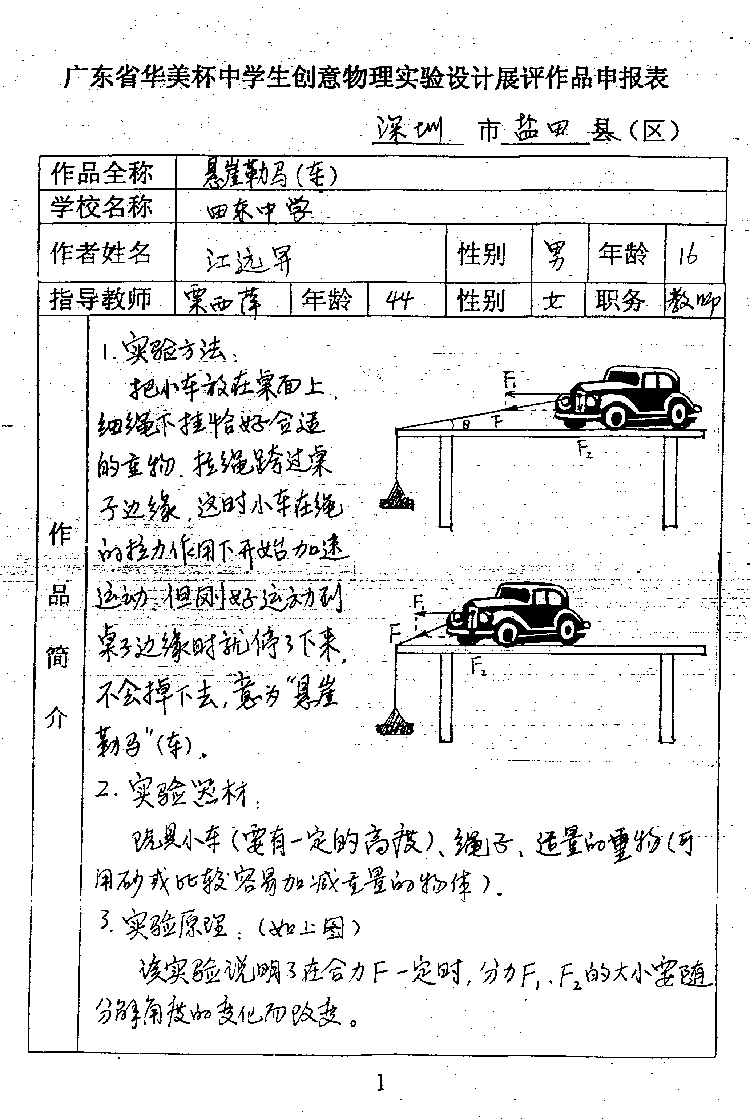 广东省华美杯中学生创意物理实验设计展评作品申报表
深圳 市 盐田 县(区)
作品全称 悬崖勒马(车)
学校名称 田东中学
作者姓名 江远昇 性别 男 年龄 16
指导教师 栗西萍 年龄 44 性别 女 职务 教师
作品简介
1. 实验方法:
把小车放在桌面上,
细绳下挂恰好合适
的重物.拉绳跨过桌
子边缘,这时小车在绳
的拉力作用下开始加速
运动,但刚好运动到
桌子边缘时就停了下来,
不会掉下去,意为“悬崖
勒马”(车).
F₁
θ
F
F₂
F₁
F
F₂
2. 实验器材:
玩具小车(需有一定的高度)、绳子、适量的重物(可
用砂或比较容易加减重量的物体).
3. 实验原理:(如上图)
该实验说明了在合力F一定时,分力F₁、F₂的大小要随
分解角度的变化而改变。
1